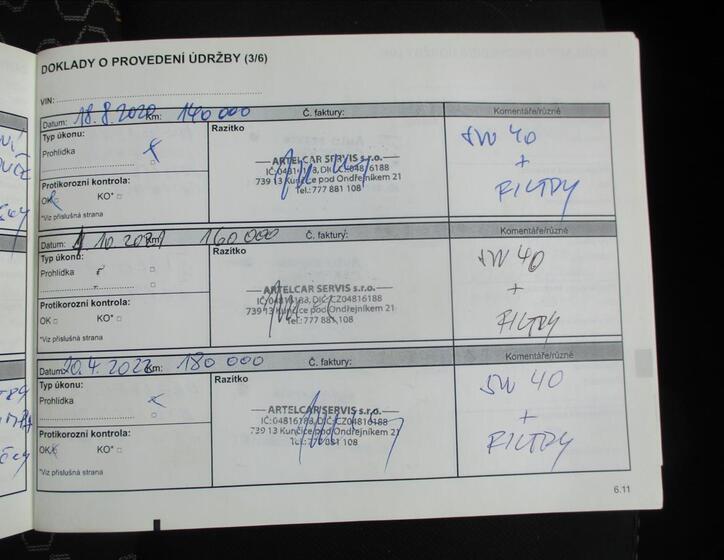 DOKLADY O PROVEDENÍ ÚDRŽBY (3/6)
VIN:
Datum: 18.8.2020 Km: 140 000 Č. faktury: Komentáře/různé
Typ úkonu: Razítko
Prohlídka X
5W 40
+
FILTRY
ARTELCAR SERVIS s.r.o.
IČ:04816188, DIČ:CZ04816188
739 13 Kunčice pod Ondřejníkem 21
Tel.: 777 881 108
Protikorozní kontrola:
OK KO*
*Viz příslušná strana
Datum: 10.2021 Km 160 000 Č. faktury: Komentáře/různé
Typ úkonu: Razítko
Prohlídka
5W 40
+
FILTRY
ARTELCAR SERVIS s.r.o.
IČ:04816188, DIČ:CZ04816188
739 13 Kunčice pod Ondřejníkem 21
Tel.: 777 881 108
Protikorozní kontrola:
OK KO*
*Viz příslušná strana
Datum: 20.4.2022 Km: 180 000 Č. faktury: Komentáře/různé
Typ úkonu: Razítko
Prohlídka X
5W 40
+
FILTRY
ARTELCAR SERVIS s.r.o.
IČ:04816188, DIČ:CZ04816188
739 13 Kunčice pod Ondřejníkem 21
Tel.: 777 881 108
Protikorozní kontrola:
OK KO*
*Viz příslušná strana
6.11